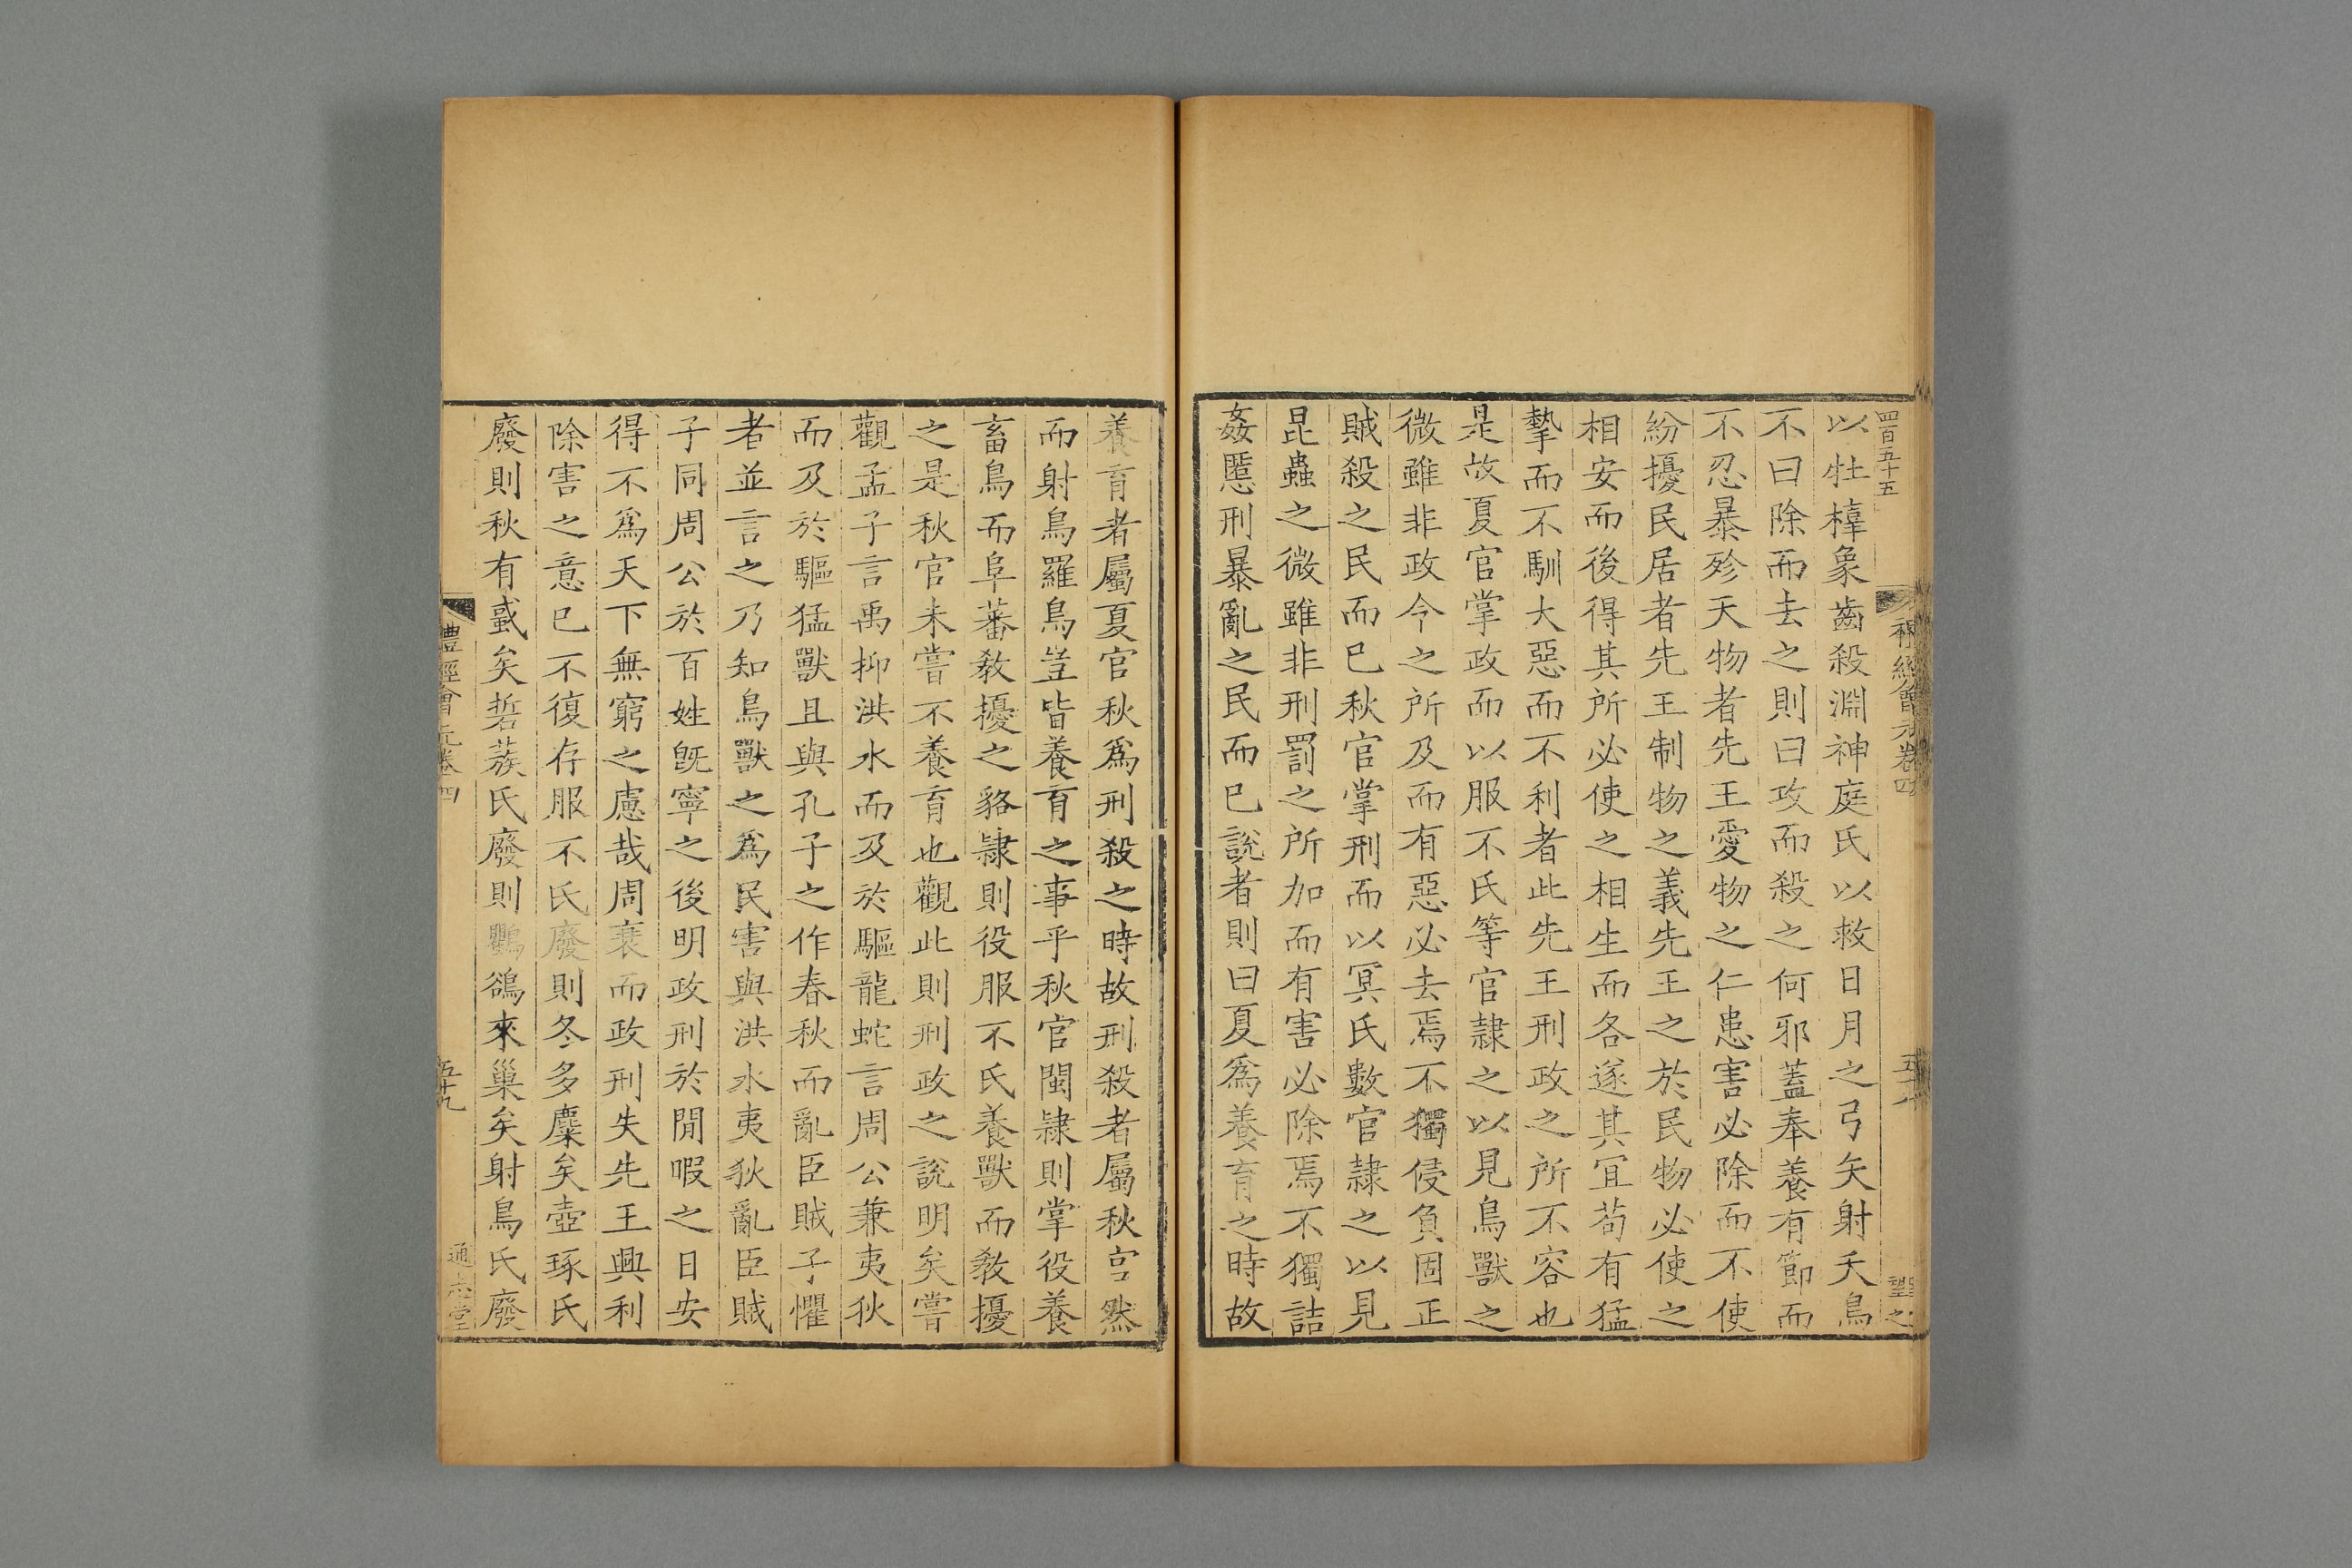 四百五十五
禮經會元卷四
聖之
以牡橭象齒殺淵神庭氏以救日月之弓矢射夭鳥
不曰除而去之則曰攻而殺之何邪蓋奉養有節而
不忍暴殄天物者先王愛物之仁患害必除而不使
紛擾民居者先王制物之義先王之於民物必使之
相安而後得其所必使之相生而各遂其宜茍有猛
摯而不馴大惡而不利者此先王刑政之所不容也
是故夏官掌政而以服不氏等官隷之以見鳥獸之
微雖非政令之所及而有惡必去焉不獨侵負固正
賊殺之民而已秋官掌刑而以冥氏數官隷之以見
昆蟲之微雖非刑罰之所加而有害必除焉不獨詰
姦慝刑暴亂之民而已說者則曰夏爲養育之時故
養育者屬夏官秋爲刑殺之時故刑殺者屬秋官然
而射鳥羅鳥豈皆養育之事乎秋官閩隷則掌役養
畜鳥而阜蕃敎擾之貉隷則役服不氏養獸而敎擾
之是秋官未嘗不養育也觀此則刑政之說明矣嘗
觀孟子言禹抑洪水而及於驅龍蛇言周公兼夷狄
而及於驅猛獸且與孔子之作春秋而亂臣賊子懼
者並言之乃知鳥獸之爲民害與洪水夷狄亂臣賊
子同周公於百姓旣寧之後明政刑於閒暇之日安
得不爲天下無窮之慮哉周衰而政刑失先王興利
除害之意已不復存服不氏廢則冬多麋矣壺琢氏
廢則秋有蜮矣硩蔟氏廢則鸜鵒來巢矣射鳥氏廢
禮經會元卷四
五十九
通志堂